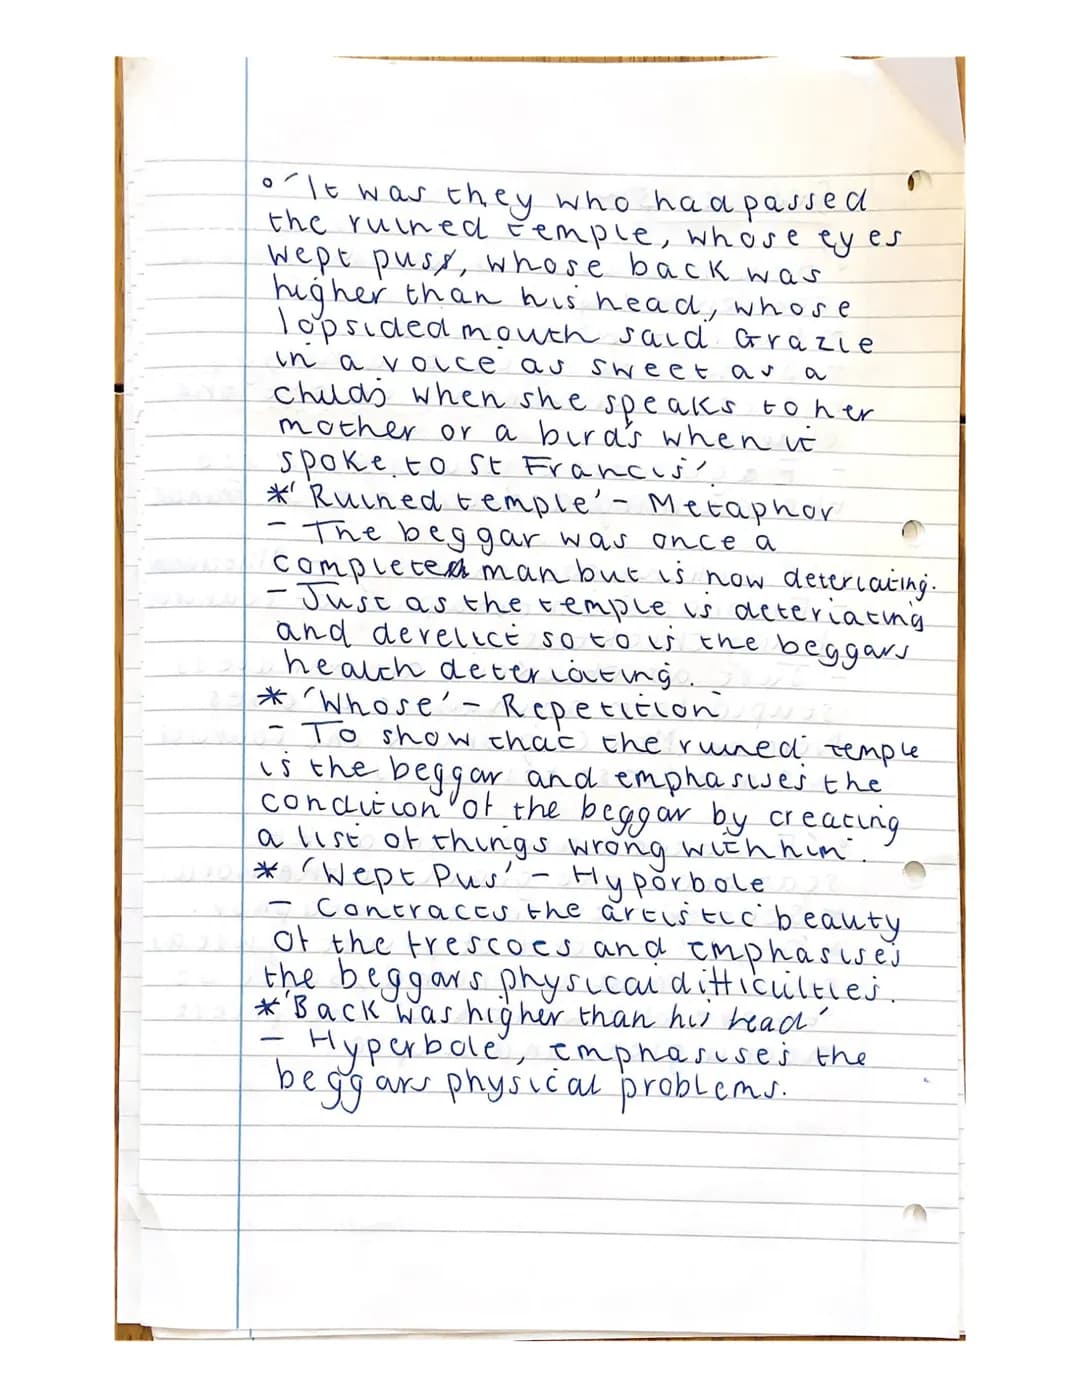 ° 'It was they who had passed
the ruined temple, whose eyes
wept pus, whose back was
higher than his head, whose
lopsided mouth said Grazie
in a voice as sweet as a
childs when she speaks to her
mother or a bird's when it
spoke to St Francis'
* 'Ruined temple' - Metaphor
- The beggar was once a
completed man but is now deteriating.
- Just as the temple is deteriating
and derelict so to is the beggars
health deteriating.
* 'Whose' - Repetition
- To show that the ruined temple
is the beggar and emphasises the
condition of the beggar by creating
a list of things wrong with him.
* 'Wept Pus' - Hyporbole
- Contracts the artistic beauty
of the frescoes and emphasises
the beggars physical difficulties.
* 'Back was higher than his head'
- Hyperbole, emphasises the
beggars physical problems.